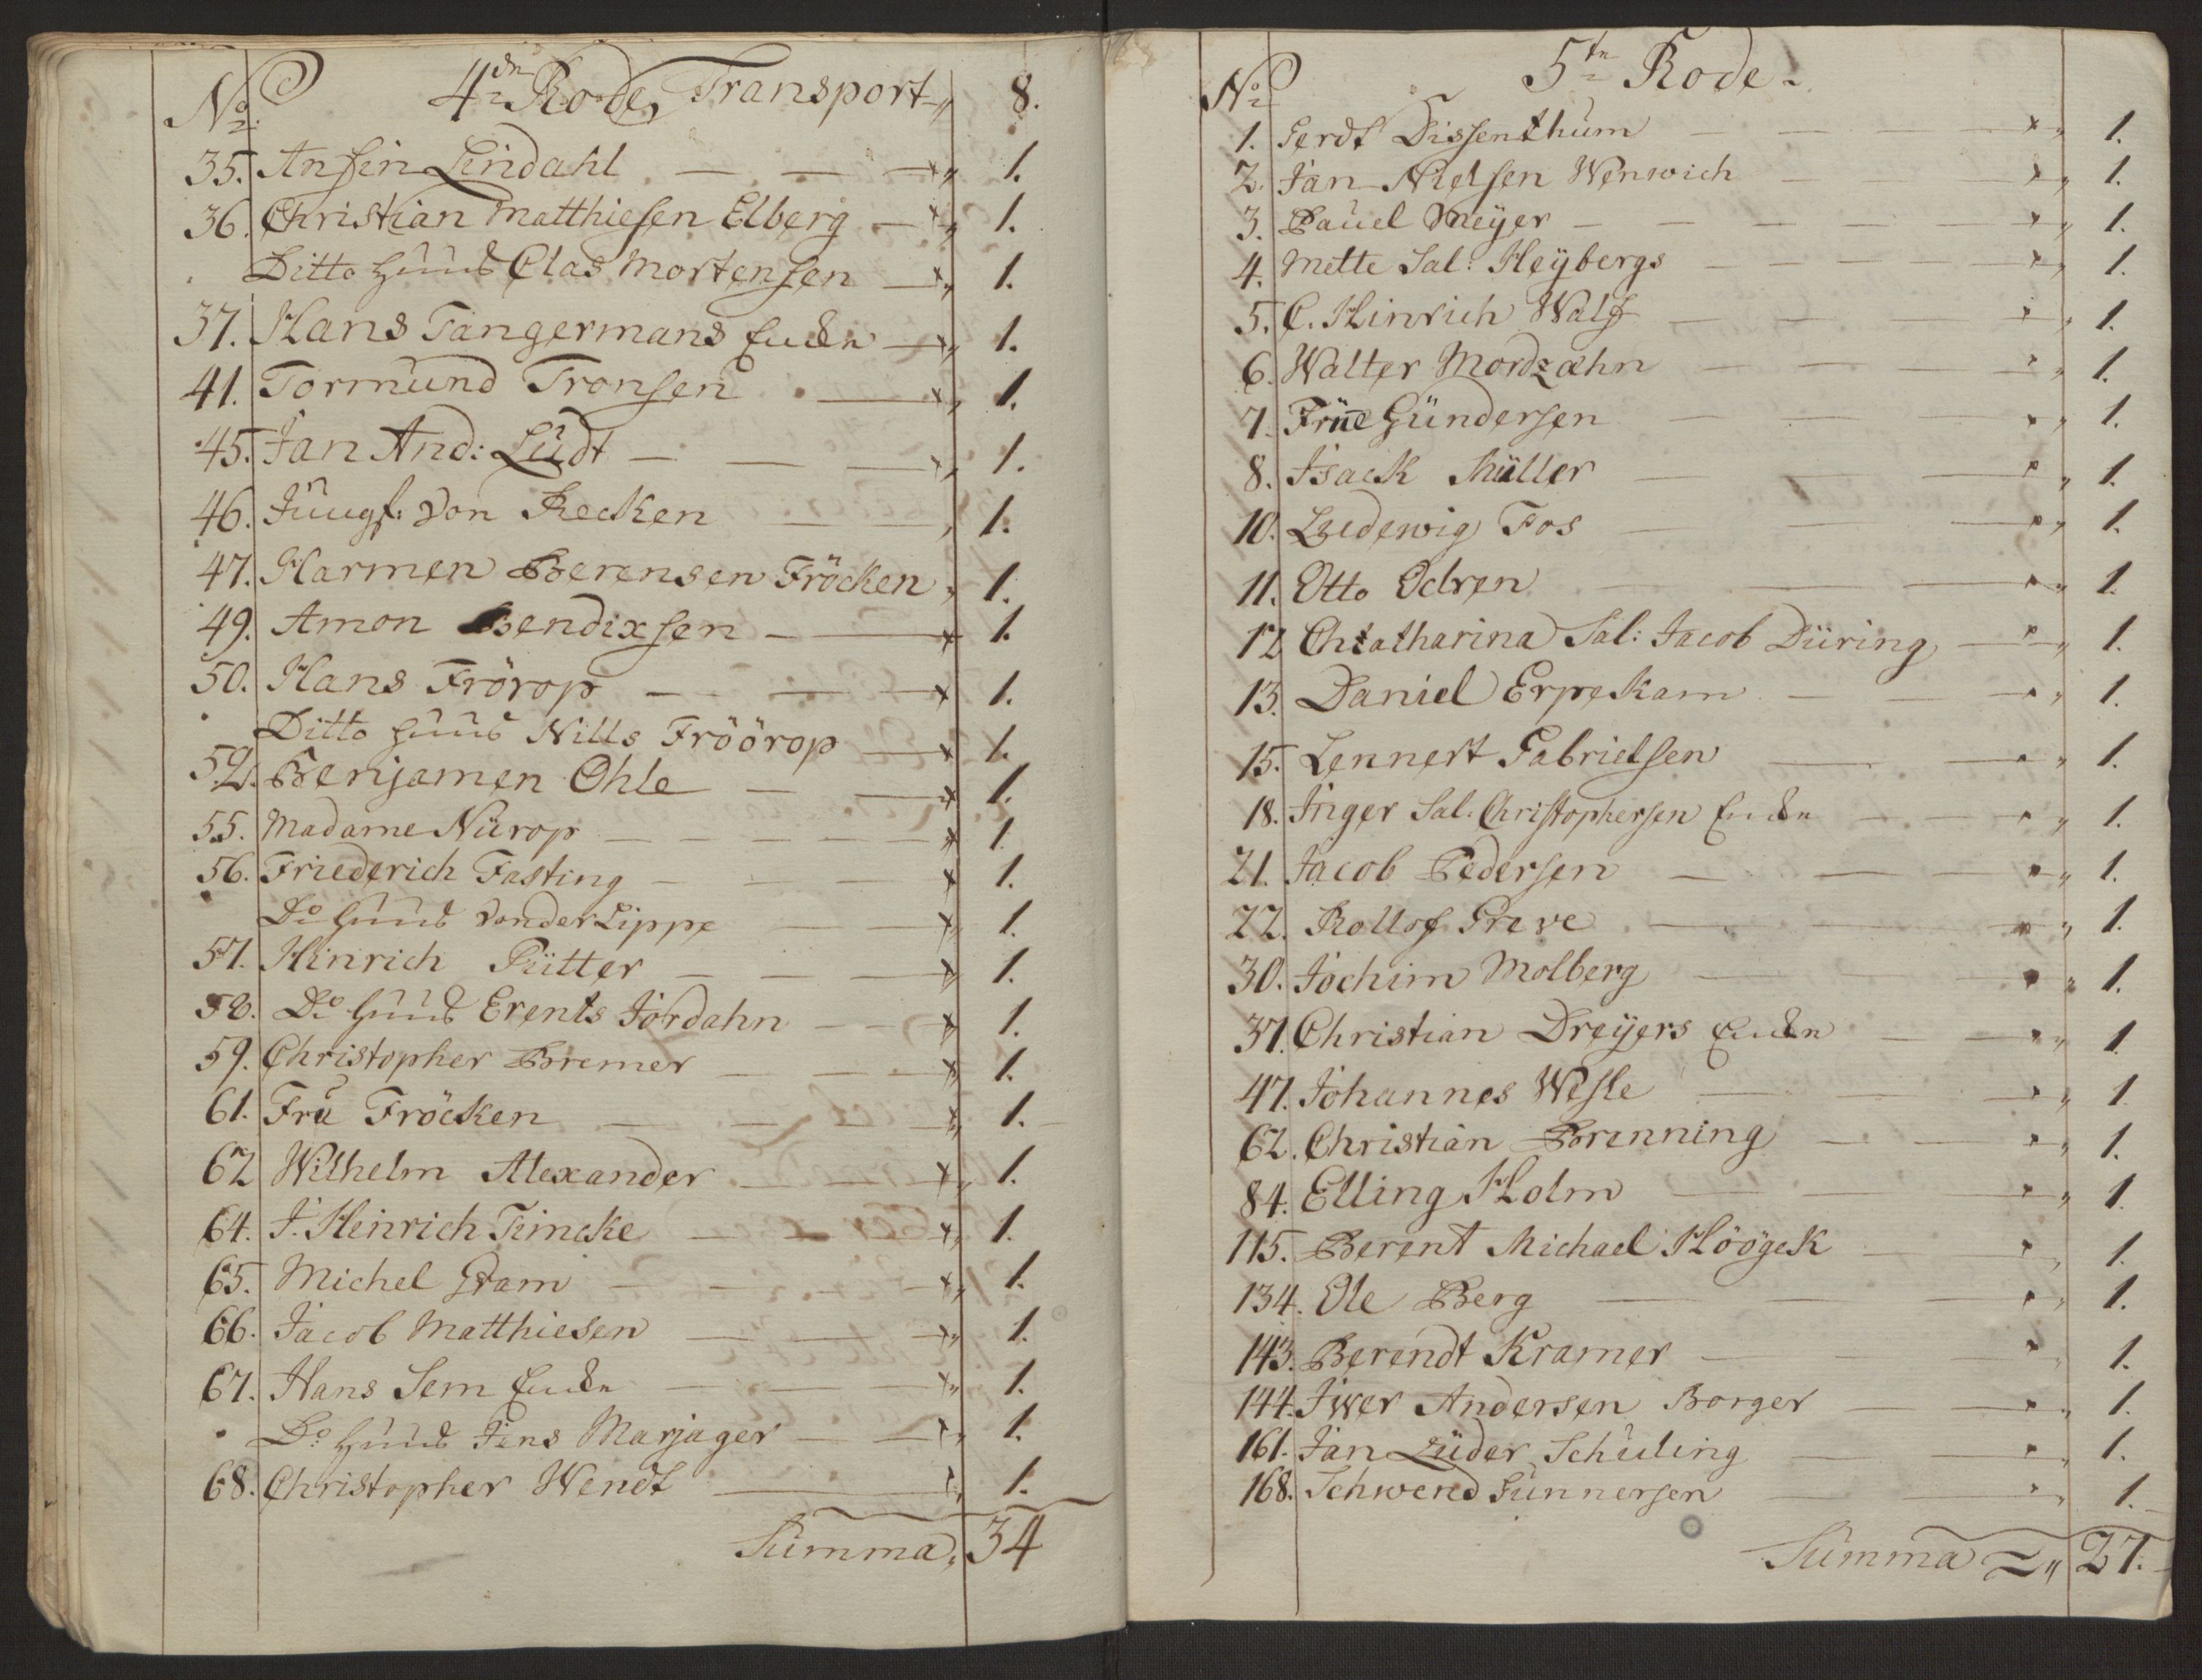 No 4de Rode, Transport „ 8.
35. Ansein Lindahl — — — x „ 1.
36. Christian Matthiesen Elberg — x „ 1.
Ditto huus Clas Mortensen — x „ 1.
37. Hans Tangermans Encke — x „ 1.
41. Tormund Tronsen — x „ 1.
45. Jan And: Lüdt — — — x „ 1.
46. Jungf: von Recken — — „ 1.
47. Harmen Berensen Fröcken „ 1.
49. Amon Bendixsen — — x 1.
50. Hans Frörop — — — x 1.
Ditto huus Nills Fröörop — x 1.
52. Benjamen Ohle — — x 1.
55. Madame Nürop — — — — x 1.
56. Friederich Fasting — — — x 1.
Do huus von der Lippe — — x „ 1.
57. Hinrich Pütter — — — x „ 1.
58. Do huus Erents Jordahn — — x 1.
59. Christopher Bremer — — — x „ 1.
61. Fru Fröcken — — — x „ 1.
62 Wilhelm Alexander — — x „ 1.
64. J. Heinrich Timcke — — x „ 1.
65. Michel Gram — — — x „ 1.
66. Jacob Matthiesen — — — x „ 1.
67. Hans Sem Encke — — — x „ 1.
Do huus Jens Marjager — — x „ 1.
68. Christopher Wendt — — x „ 1.
Summa „ 34
No 5te Rode.
1. Gerdt Dissenthum — — — x „ 1.
2. Jan Nielsen Wenwich — x „ 1.
3. Pauel Meyer — — — — x „ 1.
4. Mette Sal: Heybergs — — — x „ 1.
5. C. Hinrich Walf — — — x „ 1.
6. Walter Mordzæhn — — — x „ 1.
7. Früe Gündersen — — — x „ 1.
8. Isack Müller — — — x „ 1.
10. Ludewig Fos — — — x „ 1.
11. Otto Odren — — — x „ 1.
12 Chatharina Sal: Jacob Düring — x „ 1.
13. Daniel Erpekam — — — x „ 1.
15. Lennert Gabrielsen — — x „ 1.
18. Inger Sal: Christophersen Encke — — x „ 1.
21. Jacob Pedersen — — — x „ 1.
22. Rollof Greve — — — x „ 1.
30. Jochim Molberg — — — x „ 1.
37. Christian Dreyers Encke — — x „ 1.
47. Johannes Wesle — — — x „ 1.
62. Christian Brenning — — x „ 1.
84. Elling Holm — — — x „ 1.
115. Berent Michael Höögck — x „ 1.
134. Ole Berg — — — x „ 1.
143. Berendt Kramer — — x „ 1.
144. Iwer Andersen Borger — x „ 1.
161. Jan Lüder Schuling — x „ 1.
168. Schwend Gunnersen — x „ 1.
Summa „ 27.